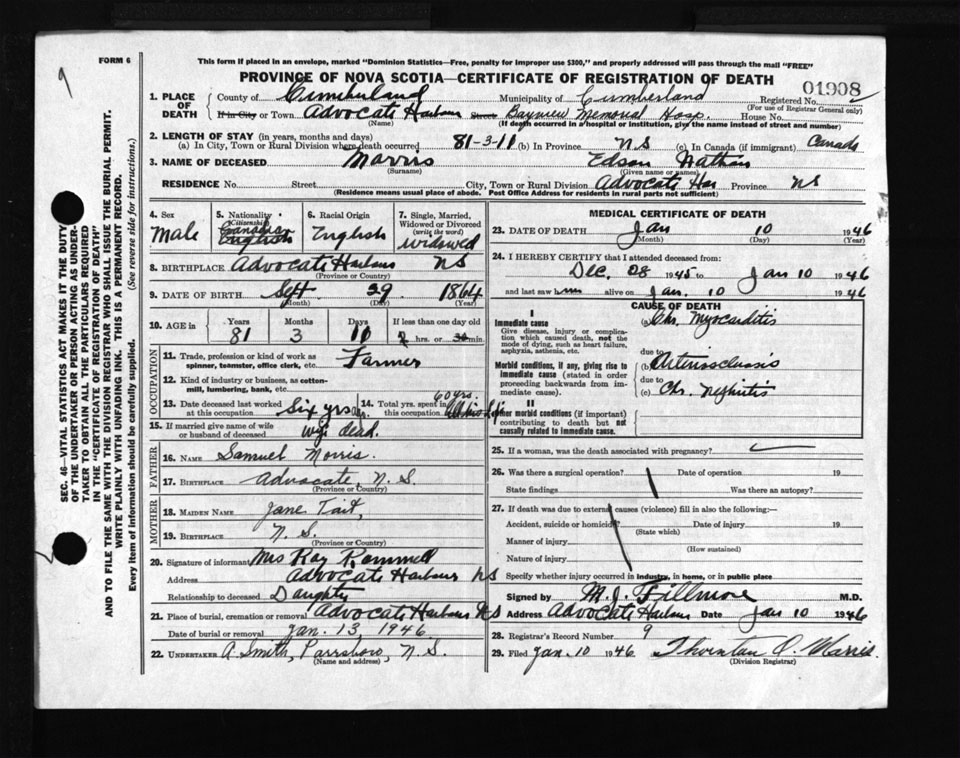 FORM 6
9
This form if placed in an envelope, marked "Dominion Statistics—Free, penalty for improper use $300," and properly addressed will pass through the mail "FREE"
PROVINCE OF NOVA SCOTIA—CERTIFICATE OF REGISTRATION OF DEATH
01908
1. PLACE OF DEATH County of Cumberland Municipality of Cumberland Registered No.
(For use of Registrar General only)
If in City or Town Advocate Harbour Street Bayview Memorial Hosp. House No.
(Name) (If death occurred in a hospital or institution, give the name instead of street and number)
2. LENGTH OF STAY (in years, months and days)
(a) In City, Town or Rural Division where death occurred 81-3-11 (b) In Province NS (c) In Canada (if immigrant) Canada
3. NAME OF DECEASED Morris Edson Nathan
(Surname) (Given name or names)
RESIDENCE No. Street City, Town or Rural Division Advocate Har Province NS
(Residence means usual place of abode. Post Office Address for residents in rural parts not sufficient)
4. Sex Male
5. Nationality Citizenship Canadian English
6. Racial Origin English
7. Single, Married, Widowed or Divorced (write the word) widowed
8. BIRTHPLACE Advocate Harbour NS
(Province or Country)
9. DATE OF BIRTH Sept. 29 1864
(Month) (Day) (Year)
10. AGE in Years 81 Months 3 Days 11 If less than one day old hrs. or min.
OCCUPATION
11. Trade, profession or kind of work as spinner, teamster, office clerk, etc. Farmer
12. Kind of industry or business, as cotton-mill, lumbering, bank, etc.
13. Date deceased last worked at this occupation Six yrs ago.
14. Total yrs. spent in this occupation 60 yrs.
15. If married give name of wife or husband of deceased wife dead.
FATHER
16. NAME Samuel Morris.
17. BIRTHPLACE Advocate, N.S.
(Province or Country)
MOTHER
18. MAIDEN NAME Jane Tait,
19. BIRTHPLACE N.S.
(Province or Country)
20. Signature of informant Mrs Ray
Address Advocate Harbour NS
Relationship to deceased Daughter
21. Place of burial, cremation or removal Advocate Harbour NS
Date of burial or removal Jan. 13, 1946
22. UNDERTAKER A. Smith, Parrsboro, N.S.
(Name and address)
MEDICAL CERTIFICATE OF DEATH
23. DATE OF DEATH Jan 10 1946
(Month) (Day) (Year)
24. I HEREBY CERTIFY that I attended deceased from:
Dec. 28 1945 to Jan 10 1946
and last saw him alive on Jan. 10 1946
CAUSE OF DEATH
I
Immediate cause (a) Chr. Myocarditis
Give disease, injury or complication which caused death, not the mode of dying, such as heart failure, asphyxia, asthenia, etc.
due to
Morbid conditions, if any, giving rise to immediate cause (stated in order proceeding backwards from immediate cause). (b) Arteriosclerosis
due to
(c) Chr. Nephritis
II
Other morbid conditions (if important) contributing to death but not causally related to immediate cause.
25. If a woman, was the death associated with pregnancy?
26. Was there a surgical operation? Date of operation 19
State findings Was there an autopsy?
27. If death was due to external causes (violence) fill in also the following:—
Accident, suicide or homicide? Date of injury 19
(State which)
Manner of injury
(How sustained)
Nature of injury
Specify whether injury occurred in industry, in home, or in public place
Signed by M. J. Fillmore M.D.
Address Advocate Harbour Date Jan 10 1946
28. Registrar's Record Number 9
29. Filed Jan. 10 1946 Thornton O. Morris.
(Division Registrar)
SEC. 46—VITAL STATISTICS ACT MAKES IT THE DUTY
OF THE UNDERTAKER OR PERSON ACTING AS UNDER-
TAKER TO OBTAIN ALL THE PARTICULARS REQUIRED
IN THE "CERTIFICATE OF REGISTRATION OF DEATH"
AND TO FILE THE SAME WITH THE DIVISION REGISTRAR WHO SHALL ISSUE THE BURIAL PERMIT.
WRITE PLAINLY WITH UNFADING INK. THIS IS A PERMANENT RECORD.
Every item of information should be carefully supplied. (See reverse side for instructions.)